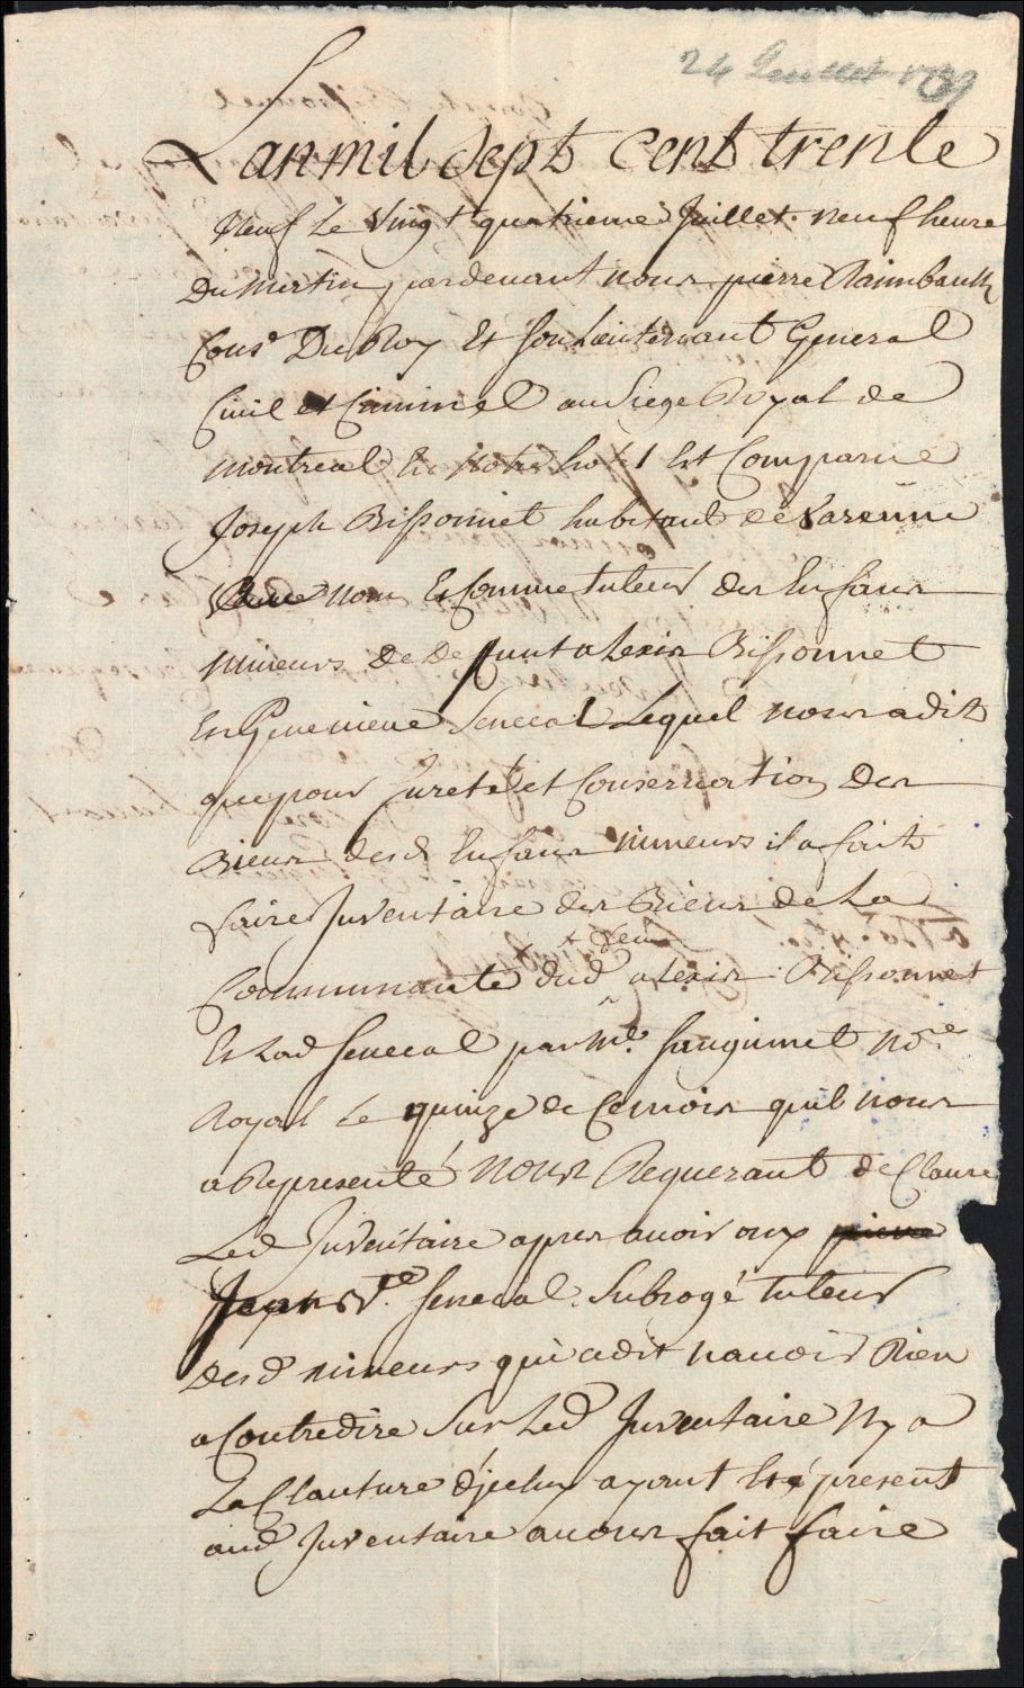 24 Juillet 1739
Lan mil Sept Cent trente
Neuf Le Vingt quatrieme Juillet neuf heure
Du Mattin pardevant nous pierre Raimbault
Cons.er Du Roy Et son Lieutenant General
Civil et Criminel au Siege Royal de
Montreal En Notre hotel Est Comparue
Joseph Bissonnet habitant de Varenne
nom Et Comme tuteur des Enfans
Mineurs De Defunt alexis Bissonnet
Et Genevieve Senecal Lequel nous a dit
que pour Sureté et Conservation Des
Biens desd Enfans mineurs il a fait
faire Inventaire des Biens de La
+ feu
Communauté dud + alexis Bissonnet
Et Lad Senecal par Me. Sanguinet No.re
Royal Le quinze de Ce mois quil nous
a Representé Nous Requerant de Claure
Led Inventaire apres avoir ouy pierre
Jean Bte. Senecal Subrogé tuteur
Desd mineurs qui a dit navoir Rien
a Contredire Sur Led Inventaire Ny a
La Clauture d'jceluy ayant Esté present
aud Inventaire avons fait faire